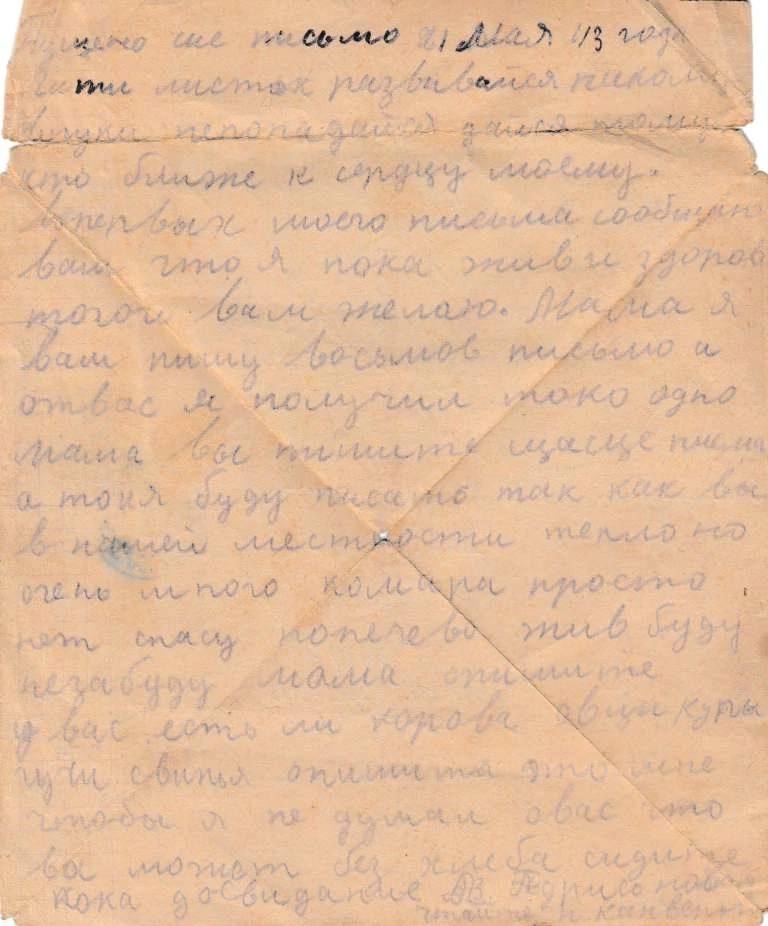 Пущено сие письмо 21 Мая 43 года
Лети листок развивайся никому
вруки непопадайся дайся тому
кто ближе к сердцу моему.
Вопервых моего письма сообщаю
вам что я пока жив и здоров
тогои вам желаю. Мама я
вам пишу восьмов письмо а
отвас я получил токо одно
мама вы пишите щасце письма
а тоия буду писать так как вы
в нашей местности тепло но
очень много комара просто
нет спасу но нечево жив буду
незабуду мама опишите
у вас есть ли корова овцы куры
гучи свинья опишите это мне
чтобы я не думал овас что
вы можеть без хлеба сидите
пока досвидание